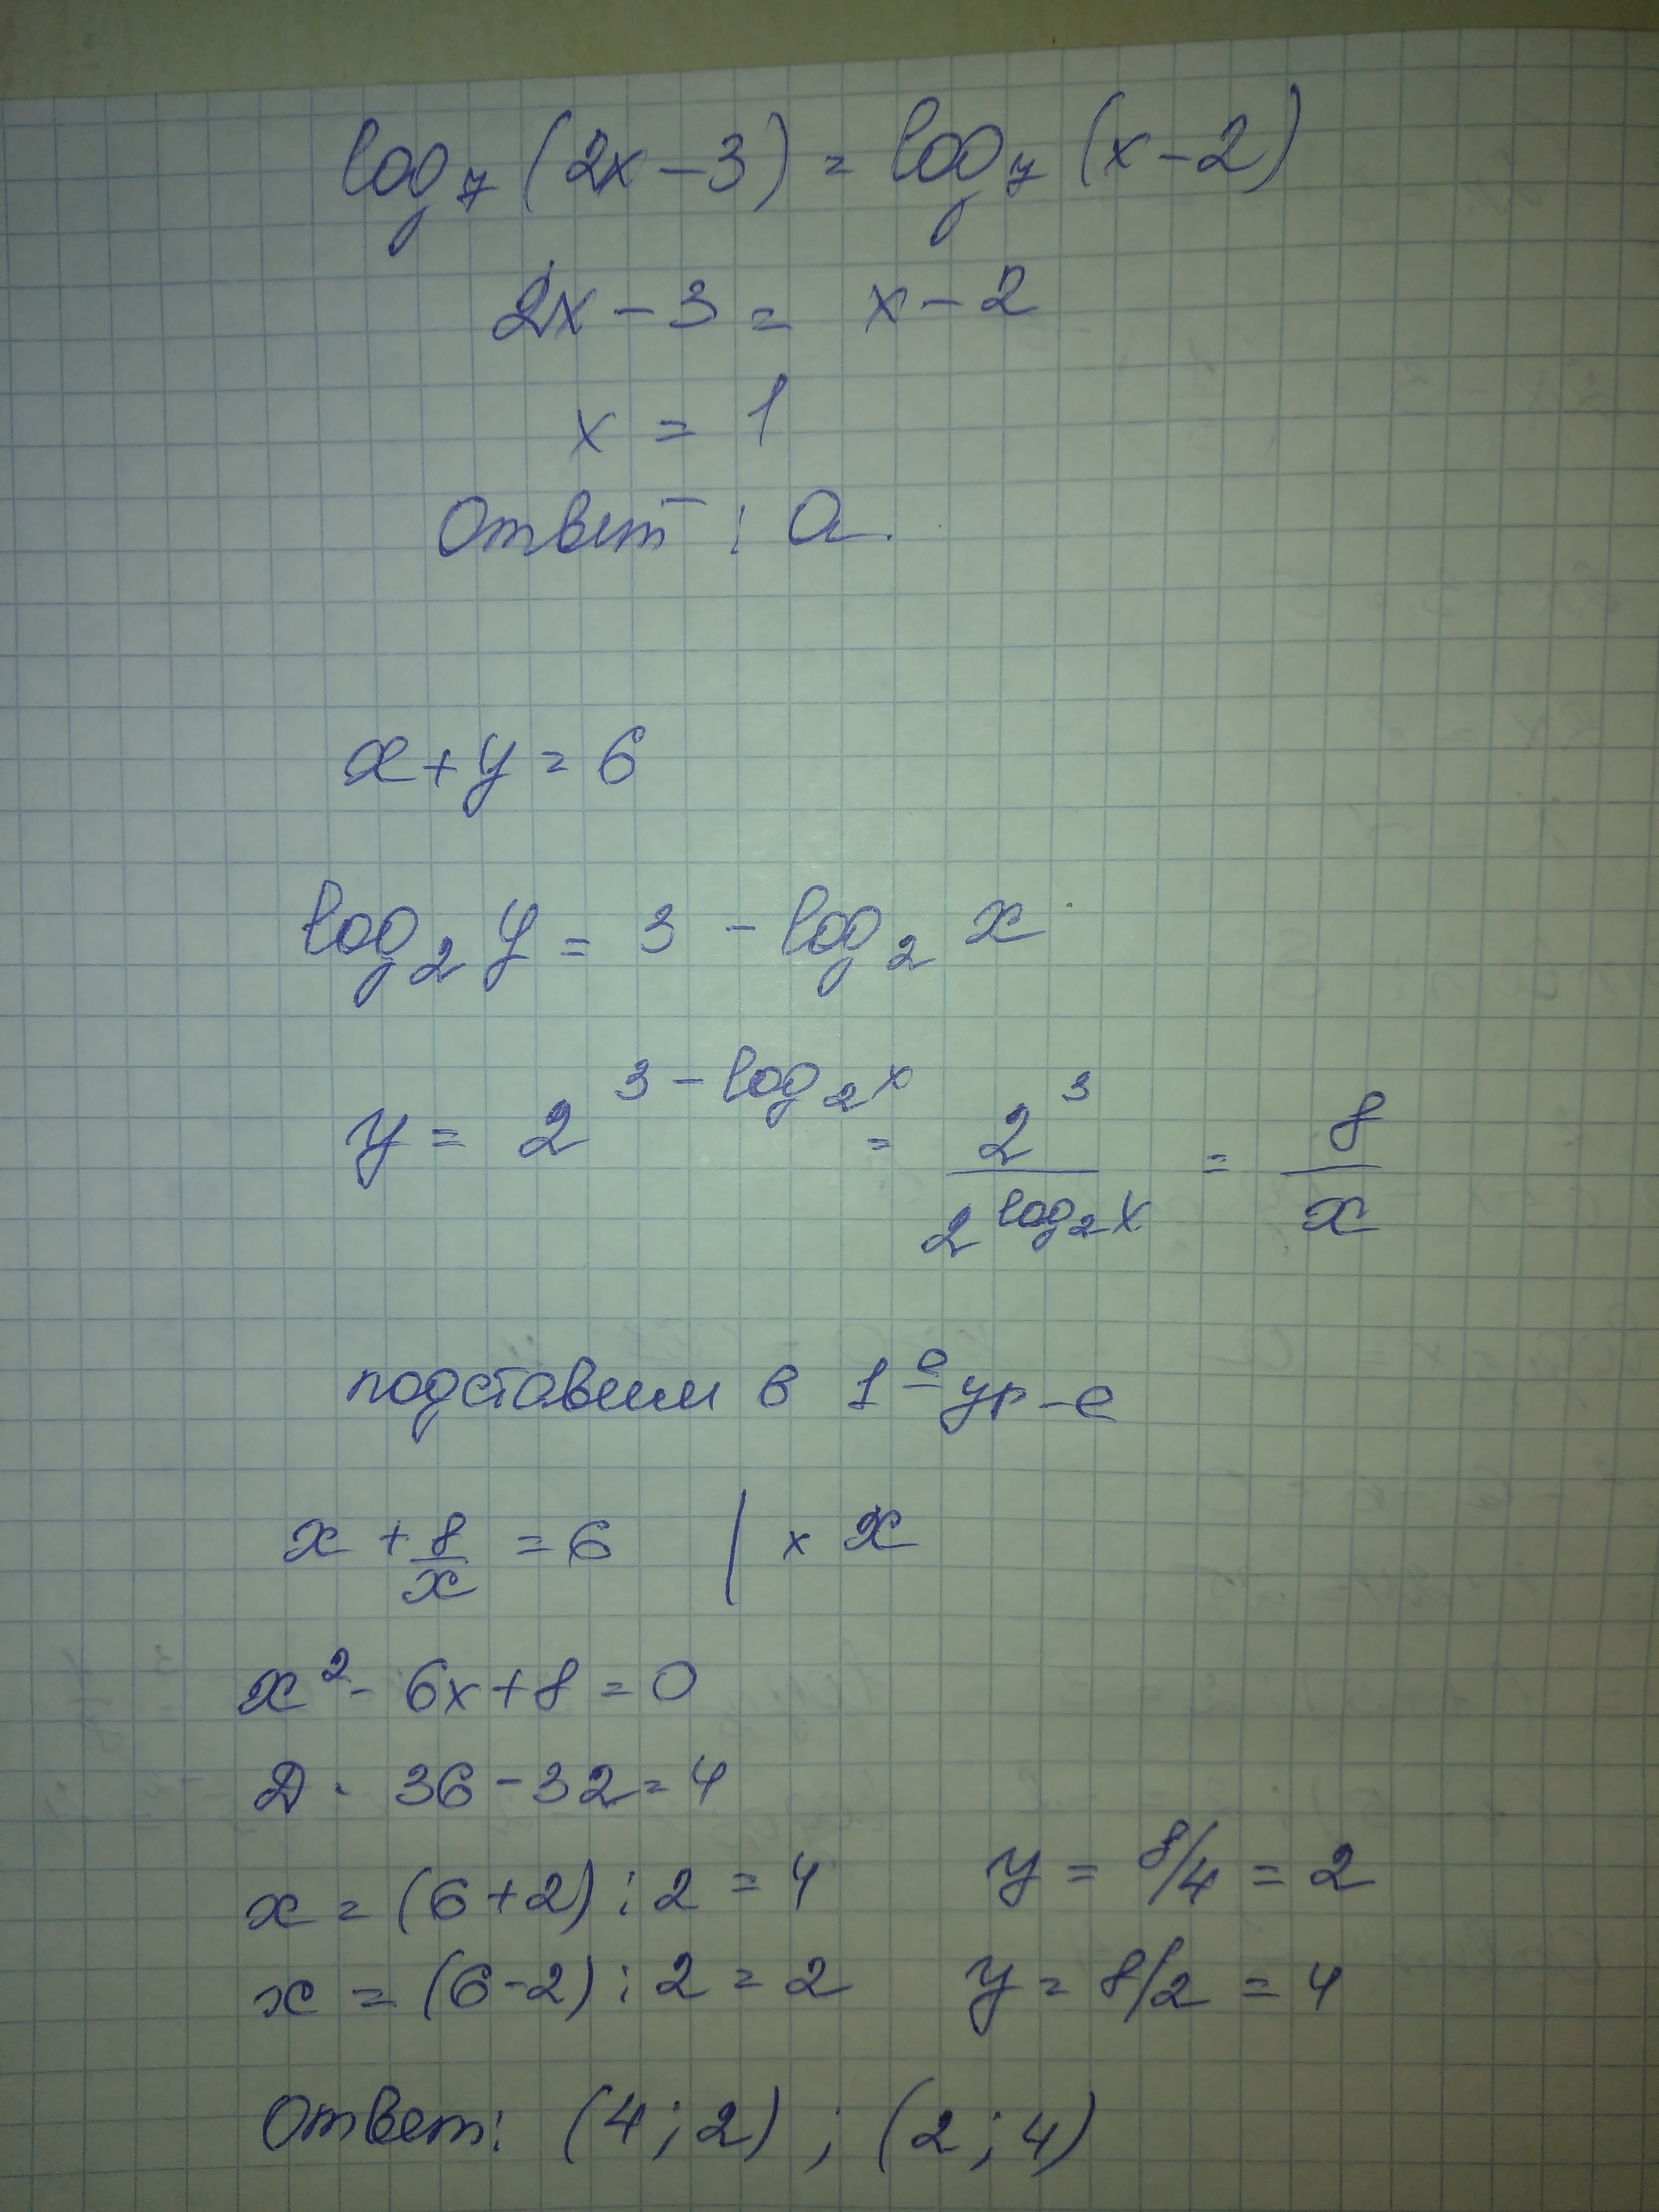 log₇ (2x – 3) = log₇ (x – 2)
2x – 3 = x – 2
x = 1
Ответ : а.
x + y = 6
log₂ y = 3 – log₂ x
y = 2^(3 – log₂ x) = 2³ / 2^(log₂ x) = 8/x
подставим в 1е ур-е
x + 8/x = 6 | × x
x² - 6x + 8 = 0
D · 36 - 32 = 4
x = (6 + 2) : 2 = 4 y = 8/4 = 2
x = (6 - 2) : 2 = 2 y = 8/2 = 4
Ответ: (4 ; 2) ; (2 ; 4)